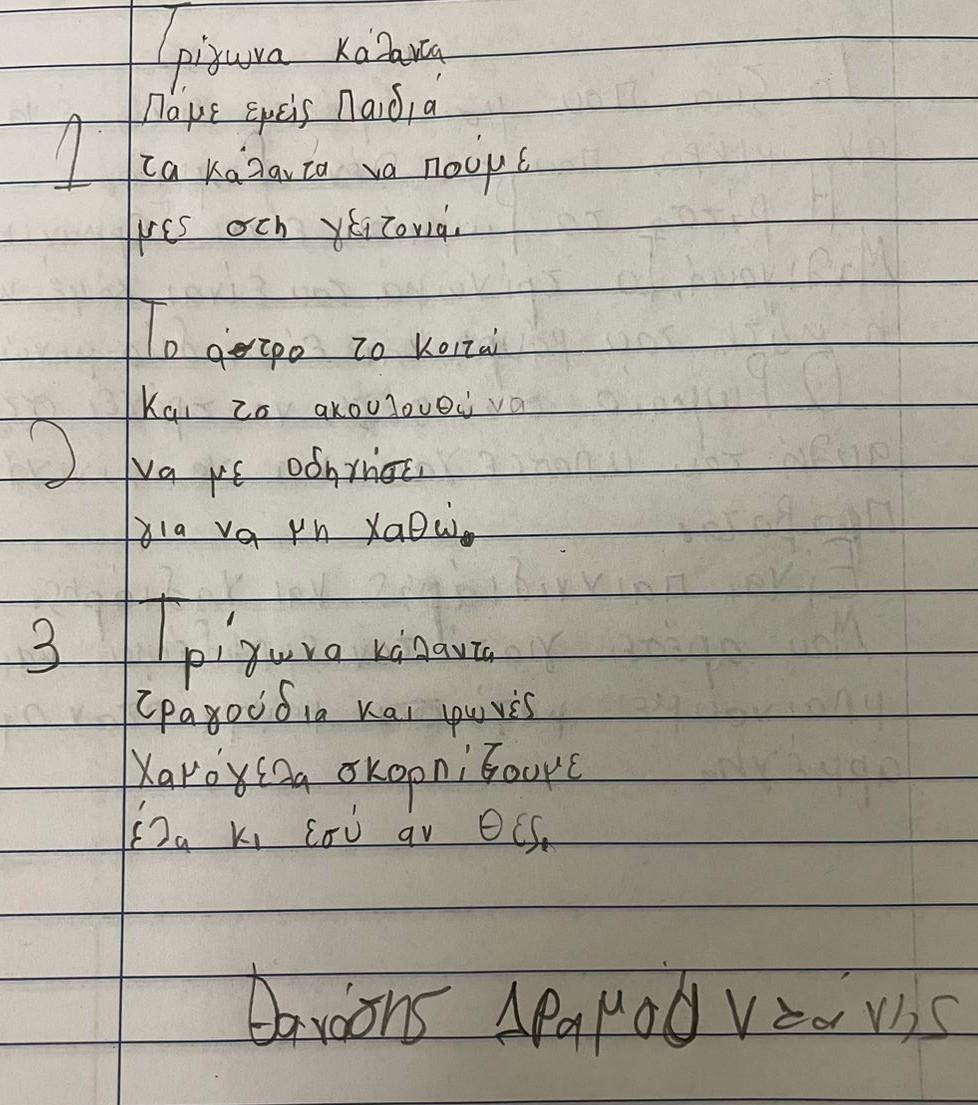 Τρίγωνα κάλαντα
Πάμε εμείς Παιδιά
1 τα κάλαντα να πούμε
μες στη γειτονιά.
Το άστρο το κοιτώ
Και το ακουλουθώ να
2 να με οδηγήσει
για να μη χαθώ.
3 Τρίγωνα κάλαντα
τραγούδια και φωνές
Χαμόγελα σκορπίζουμε
έλα κι εσύ αν θές.
Θανάσης